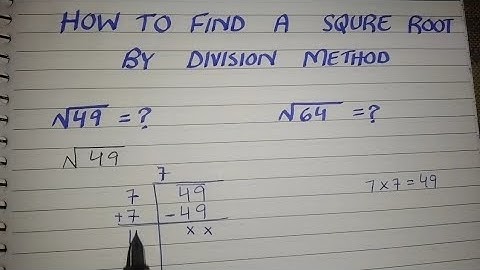 HOW TO FIND A SQURE ROOT
BY DIVISION METHOD
√49 = ? √64 = ?
√49
7
7 49
7 × 7 = 49
+7 -49
1 x x